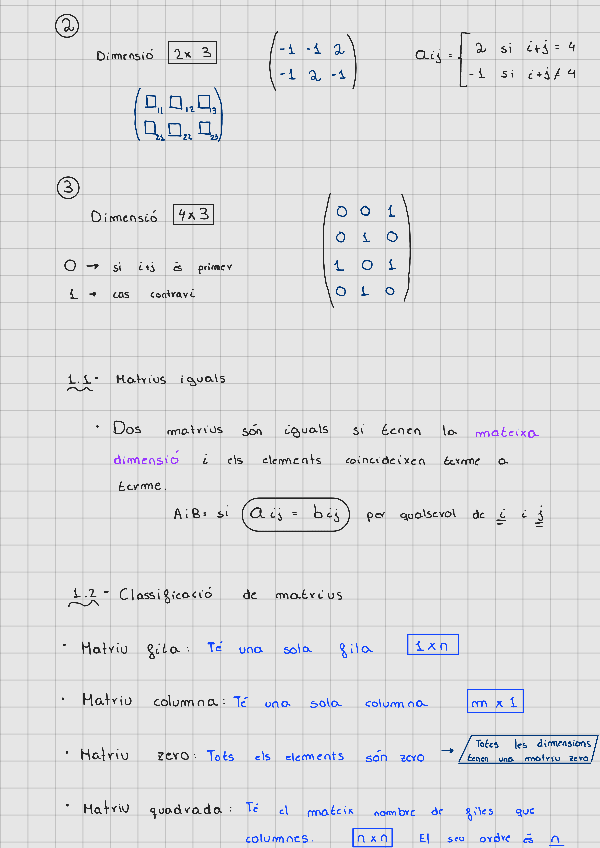 2
Dimensió 2 x 3
-1 -1 2
-1 2 -1
aij = 2 si i+j = 4
-1 si i+j ≠ 4
11 12 13
21 22 23
3
Dimensió 4 x 3
0 0 1
0 1 0
1 0 1
0 1 0
0 → si i+j és primer
1 → cas contrari
1.1- Matrius iguals
· Dos matrius són iguals si tenen la mateixa
dimensió i els elements coincideixen terme a
terme.
A i B = si aij = bij per qualsevol de i i j
1.2- Classificació de matrius
· Matriu fila: Té una sola fila 1 x n
· Matriu columna: Té una sola columna m x 1
· Matriu zero: Tots els elements són zero → Totes les dimensions
tenen una matriu zero
· Matriu quadrada: Té el mateix nombre de files que
columnes. n x n El seu ordre és n